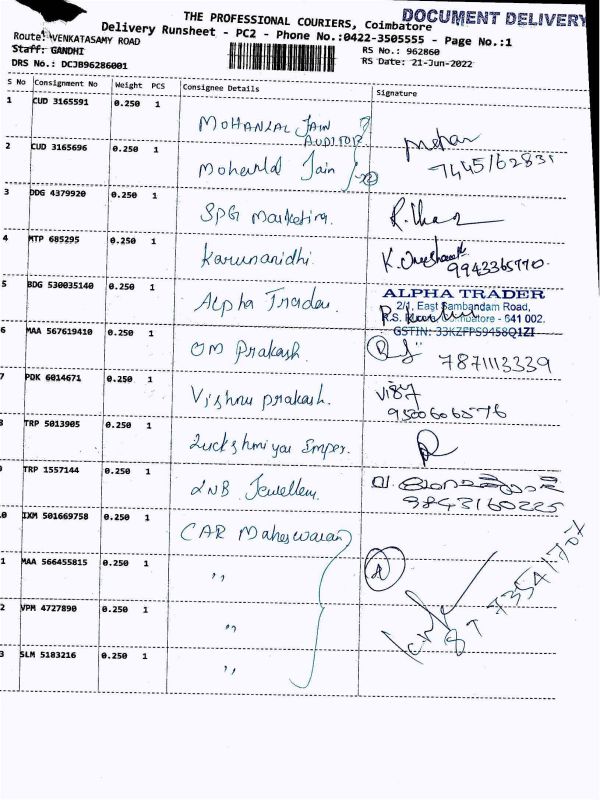 DOCUMENT DELIVERY
THE PROFESSIONAL COURIERS, Coimbatore
Delivery Runsheet - PC2 - Phone No.:0422-3505555 - Page No.:1
Route: VENKATASAMY ROAD
RS No.: 962860
Staff: GANDHI
RS Date: 21-Jun-2022
DRS No.: DCJB96286001
S No Consignment No Weight PCS Consignee Details Signature
1 CUD 3165591 0.250 1
MOHANLAL JAIN
AUDITOR
2 CUD 3165696 0.250 1
Jain
3 DDG 4379920 0.250 1
SPG Marketing.
4 MTP 685295 0.250 1
Karunanidhi
9943365770
5 BDG 530035140 0.250 1
Alpha Trader
ALPHA TRADER
2/1, East Sambandam Road,
R.S. Coimbatore - 641 002.
GSTIN: 33KZFPS9458Q1ZI
6 MAA 567619410 0.250 1
OM Prakash
7871113339
7 PDK 6014671 0.250 1
Vishnu prakash.
9500606576
8 TRP 5013905 0.250 1
Imper.
9 TRP 1557144 0.250 1
LNB Jewellery
9843160225
0 IXM 501669758 0.250 1
CAR Maheswaran
1 MAA 566455815 0.250 1
,,
2 VPM 4727890 0.250 1
,,
3 SLM 5103216 0.250 1
,,